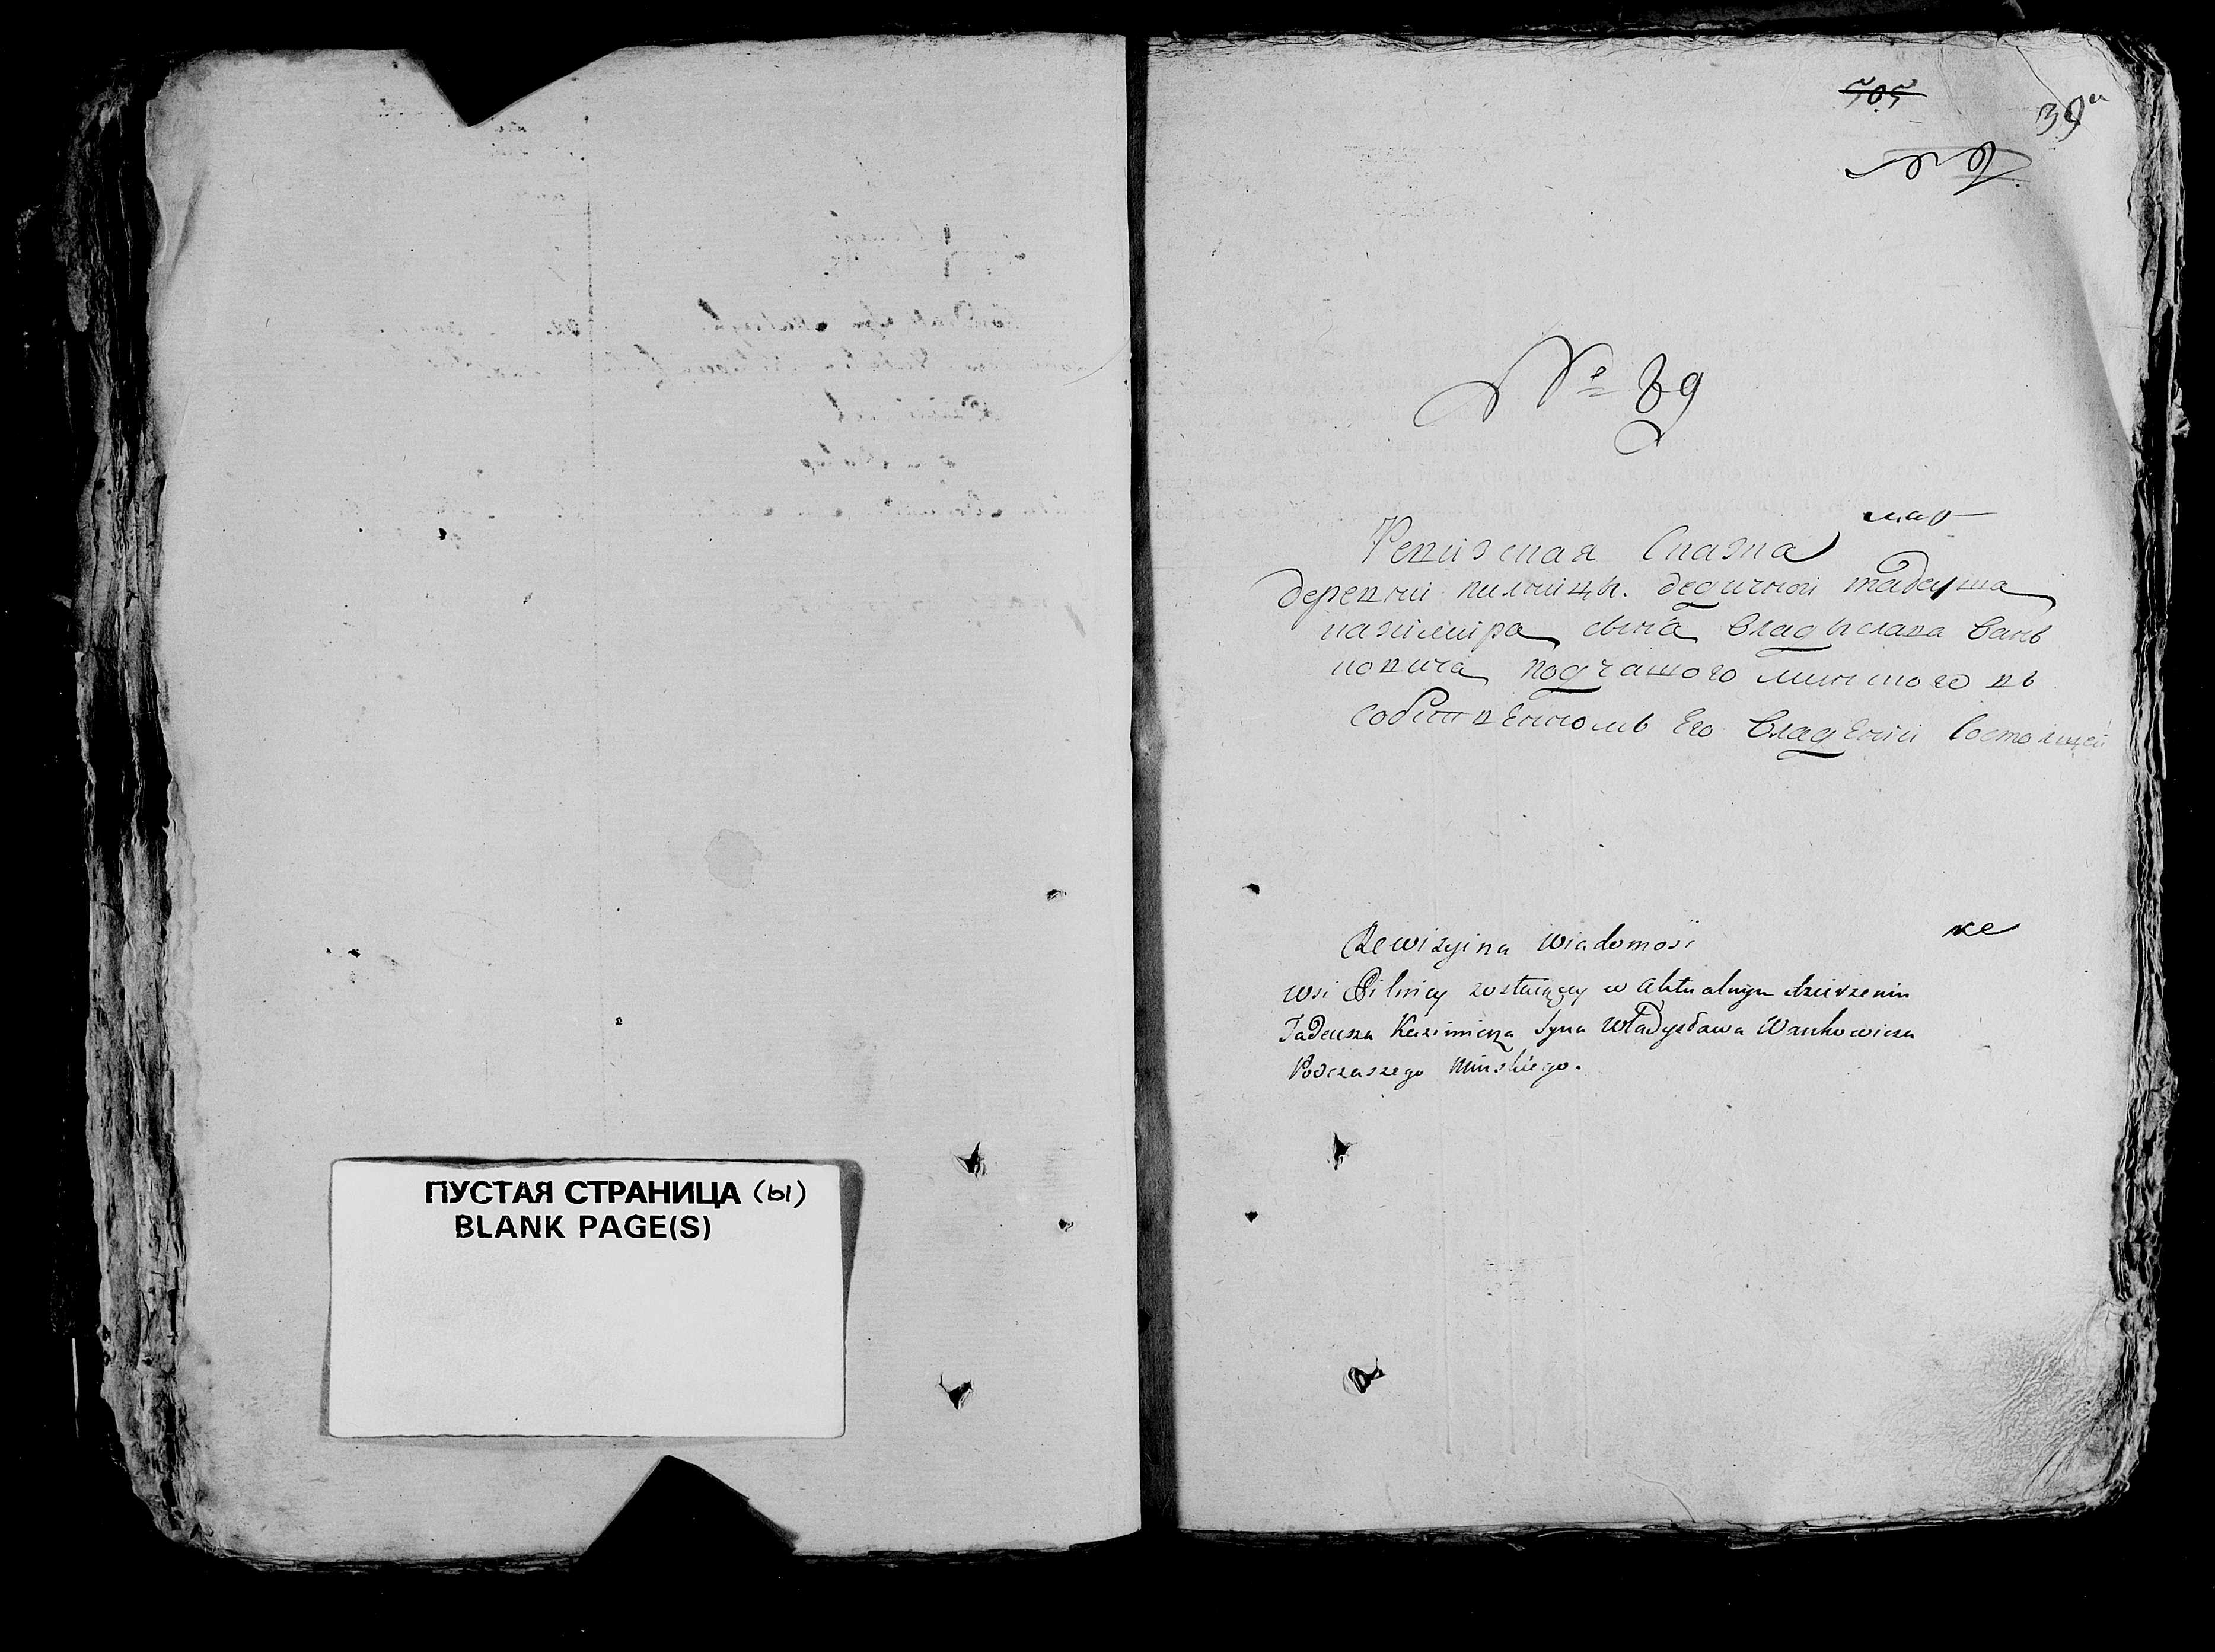 ПУСТАЯ СТРАНИЦА (ы)
BLANK PAGE(S)
505
39
№ 39
Ревизская Сказка
деревни пилницы. дедичной тадеуша
казимира сына Владыслава Вань
ковича подчашого минского въ
собственномъ Его Владении Состоящей
Rewizyina Wiadomosi
wsi Pilnicy zostaiącey w Aktualnym dzierzeniu
Tadeusza Kazimierza Syna Władysława Wankowicza
Podczaszego Minskiego.